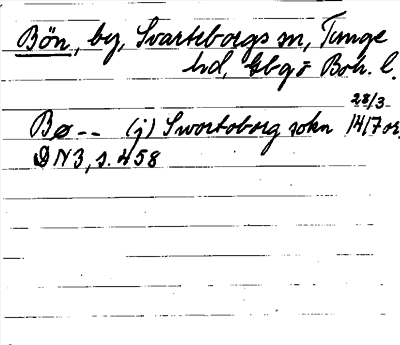 Bön, by, Svarteborgs sn, Tunge
hd, Gbg o Boh. l.
28/3
Bø-- (j) Swortoborg sokn 1417 or.
DN3, s. 458